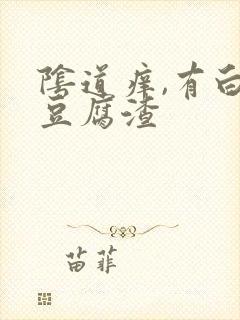 陰道痒,有白
豆腐渣
苗菲